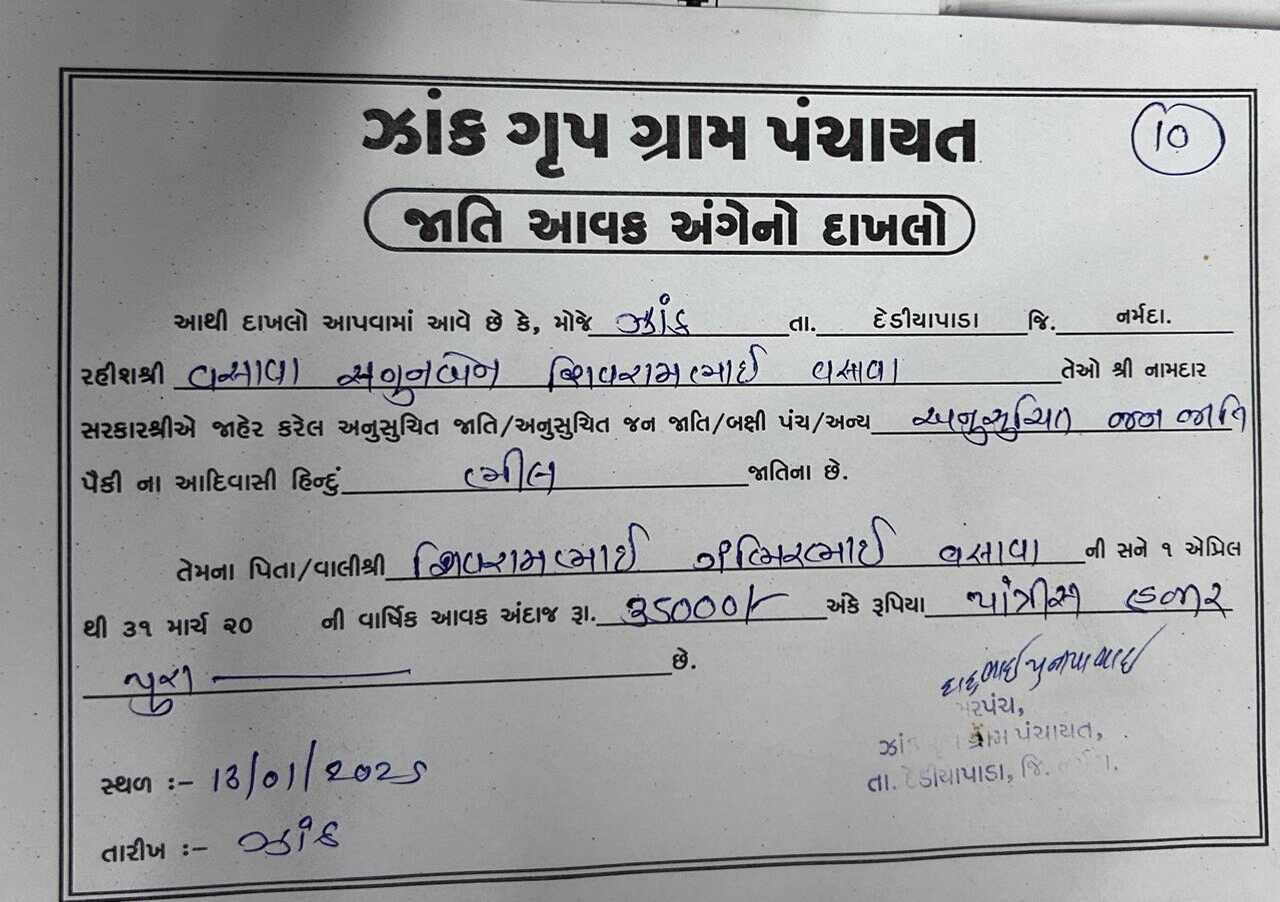 ઝાંક ગૃપ ગ્રામ પંચાયત
10
જાતિ આવક અંગેનો દાખલો
આથી દાખલો આપવામાં આવે છે કે, મોજે ઝાંક તા. દેડીયાપાડા જિ. નર્મદા.
રહીશશ્રી વસાવા સગુનબેન શિવરામભાઈ વસાવા તેઓ શ્રી નામદાર
સરકારશ્રીએ જાહેર કરેલ અનુસુચિત જાતિ/અનુસુચિત જન જાતિ/બક્ષી પંચ/અન્ય અનુસુચિત જન જાતિ
પૈકી ના આદિવાસી હિન્દું ભીલ જાતિના છે.
તેમના પિતા/વાલીશ્રી શિવરામભાઈ વસાવા ની સને ૧ એપ્રિલ
થી ૩૧ માર્ચ ૨૦ ની વાર્ષિક આવક અંદાજ રૂા. ૩૫૦૦૦/- અંકે રૂપિયા પાંત્રીસ હજાર
પુરા છે.
સરપંચ,
ઝાંક ગ્રામ પંચાયત,
તા. દેડીયાપાડા, જિ.
સ્થળ :- 13/01/2025
તારીખ :- ઝાંક